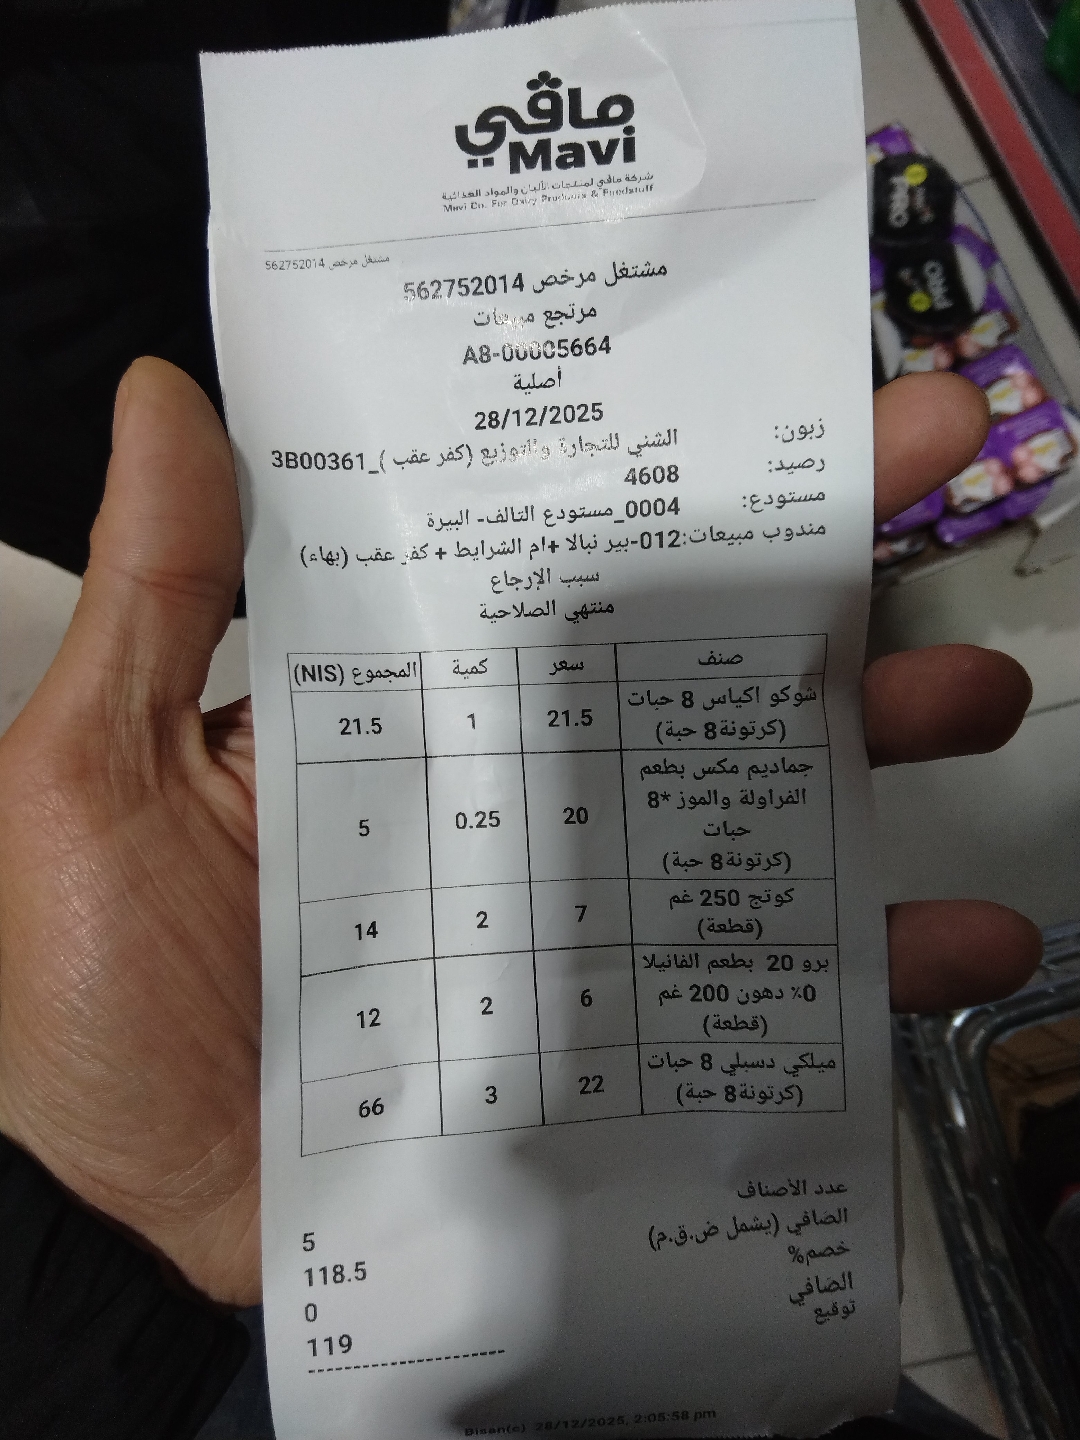 مافي
Mavi
شركة مافي لمنتجات الألبان والمواد الغذائية
Mavi Co. For Dairy Products & Foodstuff
مشتغل مرخص 562752014
مشتغل مرخص 562752014
مرتجع مبيعات
A8-00005664
أصلية
28/12/2025
زبون: الشني للتجارة والتوزيع (كفر عقب )_3B00361
رصيد: 4608
مستودع: 0004_مستودع التالف- البيرة
مندوب مبيعات:012-بير نبالا +ام الشرايط + كفر عقب (بهاء)
سبب الإرجاع
منتهي الصلاحية
صنف سعر كمية المجموع (NIS)
شوكو اكياس 8 حبات
(كرتونة8 حبة) 21.5 1 21.5
جماديم مكس بطعم
الفراولة والموز *8
حبات
(كرتونة8 حبة) 20 0.25 5
كوتج 250 غم
(قطعة) 7 2 14
برو 20 بطعم الفانيلا
0٪ دهون 200 غم
(قطعة) 6 2 12
ميلكي دسبلي 8 حبات
(كرتونة8 حبة) 22 3 66
عدد الأصناف 5
الصافي (يشمل ض.ق.م) 118.5
خصم% 0
الصافي 119
توقيع
Bisan(c) 28/12/2025, 2:05:58 pm
PRO